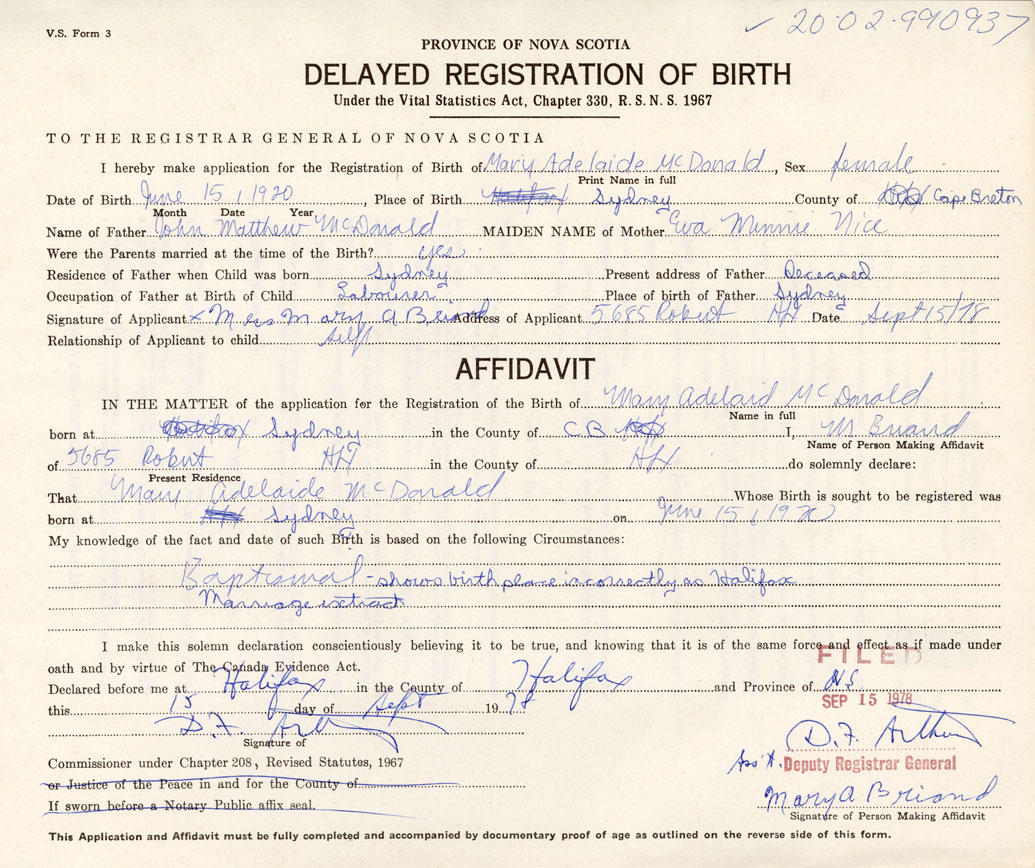 V.S. Form 3
✓ 20-02-990937
PROVINCE OF NOVA SCOTIA
DELAYED REGISTRATION OF BIRTH
Under the Vital Statistics Act, Chapter 330, R.S.N.S. 1967
TO THE REGISTRAR GENERAL OF NOVA SCOTIA
I hereby make application for the Registration of Birth of Mary Adelaide McDonald, Sex female
Print Name in full
Date of Birth June 15, 1920, Place of Birth Halifax Sydney County of Cape Breton
Month Date Year
Name of Father John Matthew McDonald MAIDEN NAME of Mother Eva Minnie Nice
Were the Parents married at the time of the Birth? yes
Residence of Father when Child was born Sydney Present address of Father Deceased
Occupation of Father at Birth of Child Labourer Place of birth of Father Sydney
Signature of Applicant x Mrs Mary A Briand Address of Applicant 5685 Robert Hfx Date Sept 15/78
Relationship of Applicant to child self
AFFIDAVIT
IN THE MATTER of the application for the Registration of the Birth of Mary Adelaid McDonald
Name in full
born at Sydney in the County of C.B. I, M Briand
Name of Person Making Affidavit
of 5685 Robert Hfx in the County of Hfx do solemnly declare:
Present Residence
That Mary Adelaide McDonald Whose Birth is sought to be registered was
born at Hfx Sydney on June 15, 1920
My knowledge of the fact and date of such Birth is based on the following Circumstances:
Baptismal - shows birthplace incorrectly as Halifax
Marriage extract
I make this solemn declaration conscientiously believing it to be true, and knowing that it is of the same force and effect as if made under
oath and by virtue of The Canada Evidence Act.
FILED
Declared before me at Halifax in the County of Halifax and Province of N.S.
SEP 15 1978
this 15 day of Sept 1978
D.F. Arthur
Signature of
D.F. Arthur
Commissioner under Chapter 208, Revised Statutes, 1967
Ass't. Deputy Registrar General
or Justice of the Peace in and for the County of
If sworn before a Notary Public affix seal.
Mary A Briand
Signature of Person Making Affidavit
This Application and Affidavit must be fully completed and accompanied by documentary proof of age as outlined on the reverse side of this form.